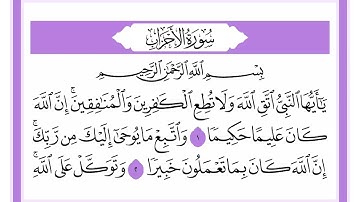 سُورَةُ الْأَحْزَابِ
بِسْمِ اللَّهِ الرَّحْمَٰنِ الرَّحِيمِ
يَٰٓأَيُّهَا النَّبِيُّ اتَّقِ اللَّهَ وَلَا تُطِعِ الْكَٰفِرِينَ وَالْمُنَٰفِقِينَ ۗ إِنَّ اللَّهَ
كَانَ عَلِيمًا حَكِيمًا ١ وَاتَّبِعْ مَا يُوحَىٰٓ إِلَيْكَ مِن رَّبِّكَ ۚ
إِنَّ اللَّهَ كَانَ بِمَا تَعْمَلُونَ خَبِيرًا ٢ وَتَوَكَّلْ عَلَى اللَّهِ ۚ